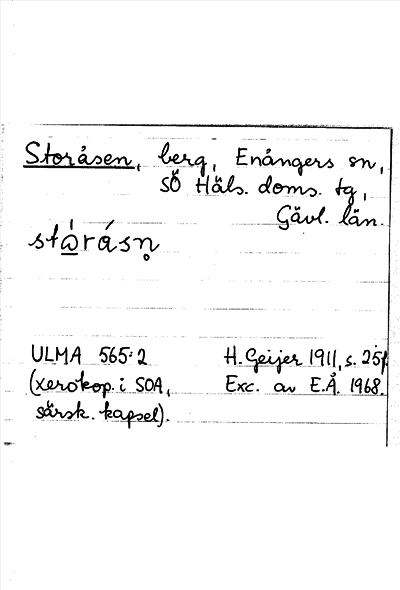 Storåsen, berg, Enångers sn,
SÖ Häls. doms. tg,
Gävl. län.
stò̲rásn̥
ULMA 565:2 H. Geijer 1911, s. 25f
(xerokop. i SOA, Exc. av E.Å. 1968.
särsk. kapsel).